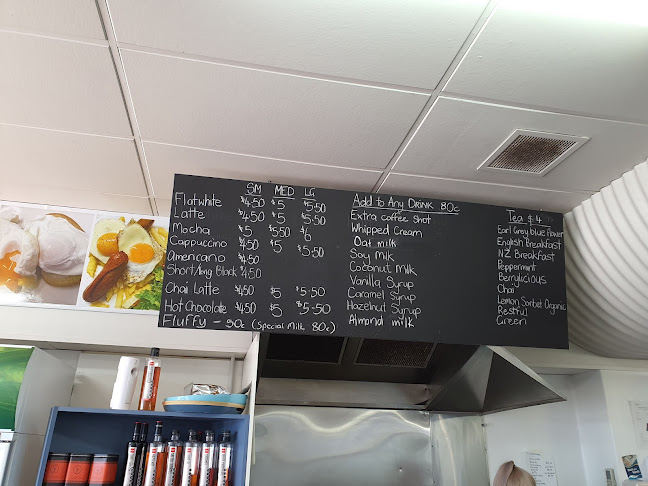 SM MED LG
Flatwhite $4.50 $5 $5.50
Latte $4.50 $5 $5.50
Mocha $5 $5.50 $6
Cappuccino $4.50 $5 $5.50
Americano $4.50
Short/long Black $4.50
Chai Latte $4.50 $5 $5.50
Hot Chocolate $4.50 $5 $5.50
Fluffy - 50c (Special Milk 80c)
Add to Any Drink 80c
Extra coffee shot
Whipped Cream
Oat milk
Soy Milk
Coconut Milk
Vanilla Syrup
Caramel Syrup
Hazelnut Syrup
Almond milk
Tea $4
Earl Grey blue flower
English Breakfast
NZ Breakfast
Peppermint
Berrylicious
Chai
Lemon Sorbet Organic
Restful
Green